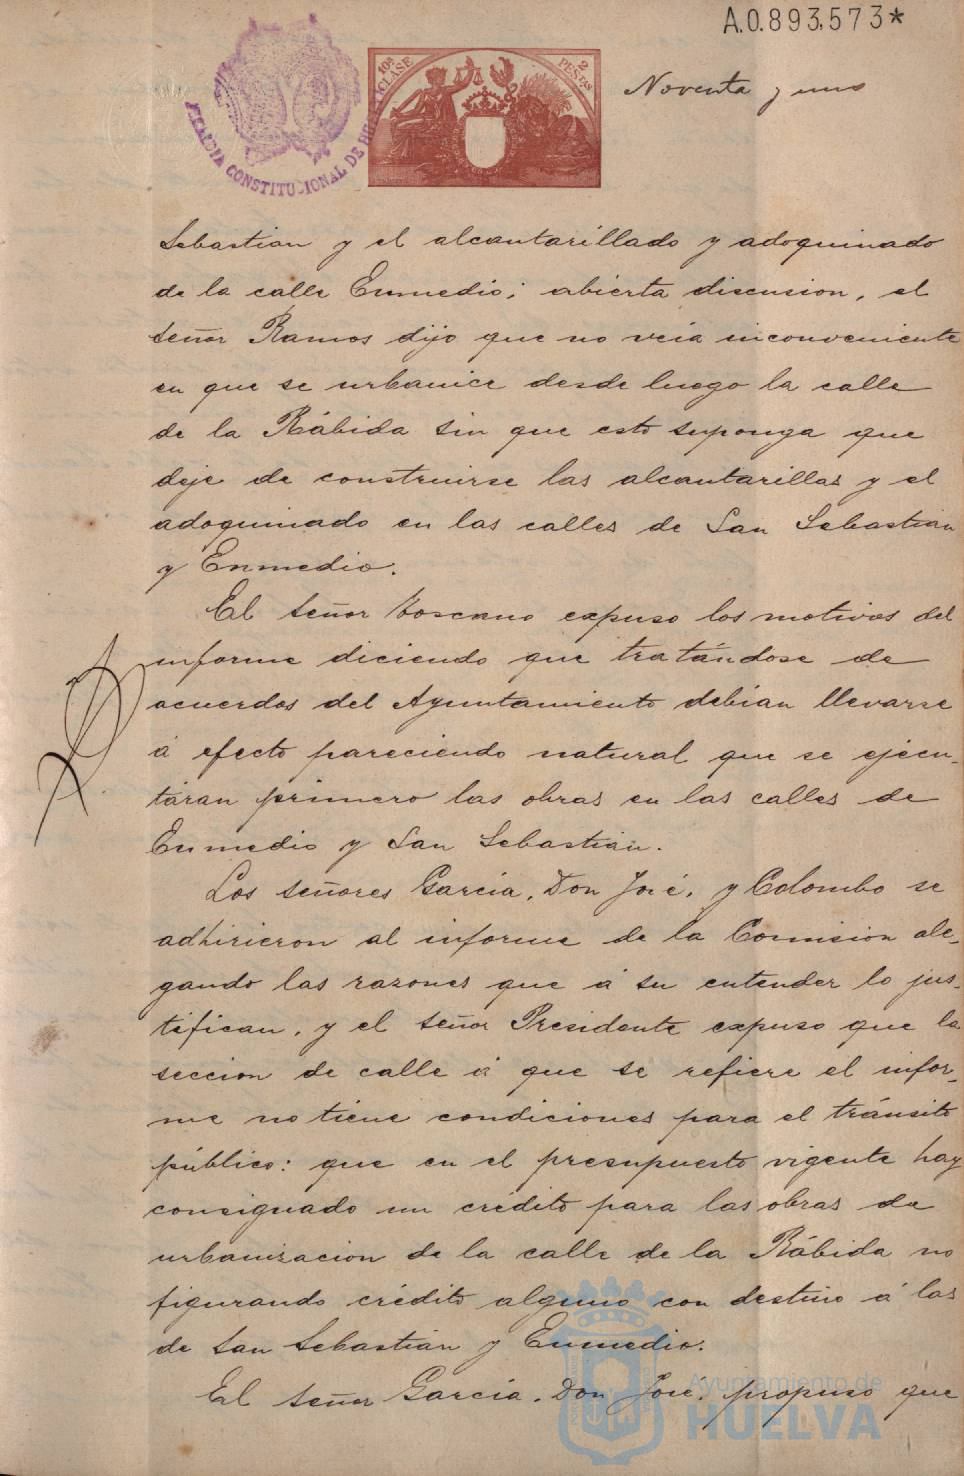 A.0.893,573*
10ª CLASE
2 PESETAS
ALCALDIA CONSTITUCIONAL DE HUELVA
Noventa y uno
Sebastian y el alcantarillado y adoquinado
de la calle Enmedio; abierta discusion, el
señor Ramos dijo que no veia inconveniente
en que se urbanice desde luego la calle
de la Rábida sin que esto suponga que
deje de construirse las alcantarillas y el
adoquinado en las calles de San Sebastian
y Enmedio.
El señor Toscano expuso los motivos del
informe diciendo que tratándose de
acuerdos del Ayuntamiento debian llevarse
á efecto pareciendo natural que se ejecu-
táran primero las obras en las calles de
Enmedio y San Sebastian.
Los señores Garcia, Don José, y Colombo se
adhirieron al informe de la Comision ale-
gando las razones que á su entender lo jus-
tifican, y el señor Presidente expuso que la
seccion de calle á que se refiere el infor-
me no tiene condiciones para el tránsito
público: que en el presupuesto vigente hay
consignado un crédito para las obras de
urbanizacion de la calle de la Rábida no
figurando crédito alguno con destino á las
de San Sebastian y Enmedio.
El señor Garcia, Don José, propuso que
Ayuntamiento de
HUELVA